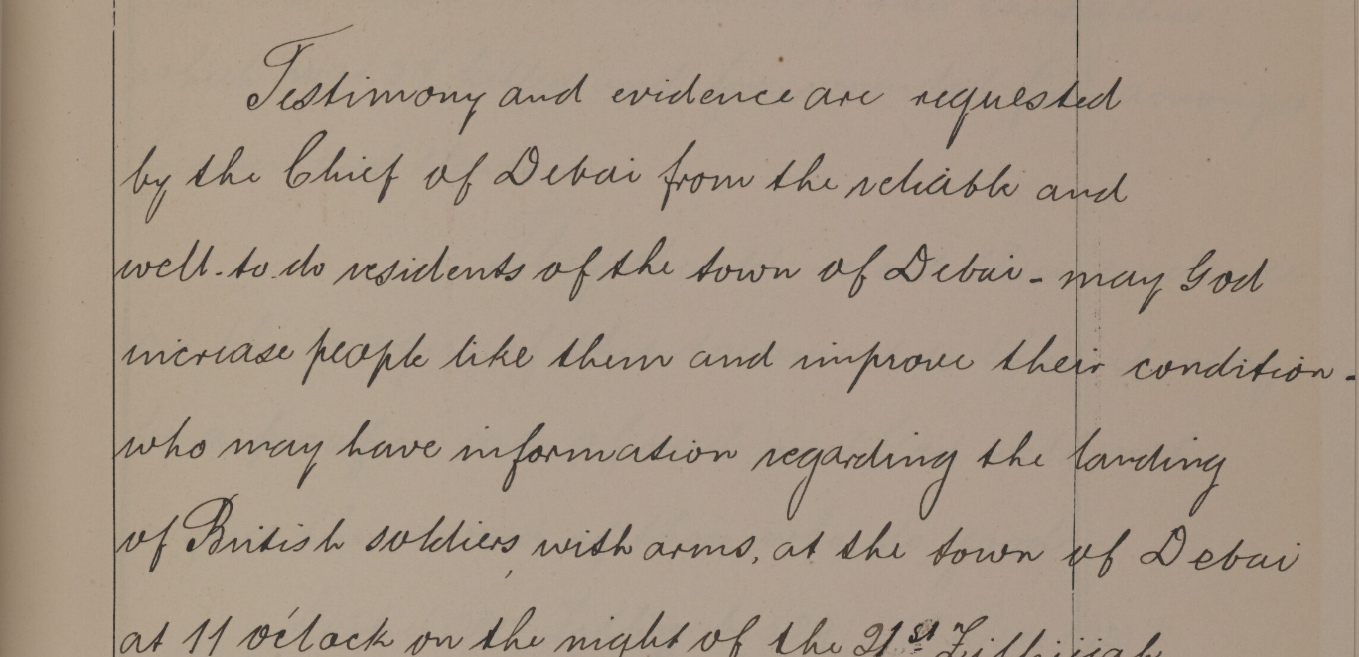 Testimony and evidence are requested
by the Chief of Debai from the reliable and
well-to-do residents of the town of Debai - may God
increase people like them and improve their condition -
who may have information regarding the landing
of British soldiers, with arms, at the town of Debai
at 11 o'clock on the night of the 21st Zilhijjah